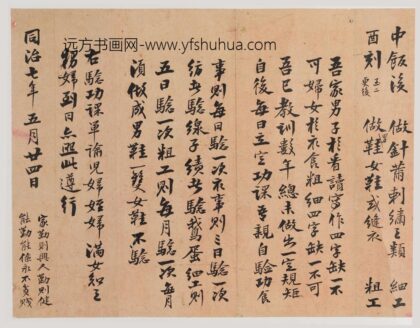 中飯後 做針黹刺繡之類 細工
酉刻 過二更後 做男鞋女鞋或縫衣 粗工
吾家男子於看讀寫作四字缺一不
可婦女於衣食粗細四字缺一不可
吾已教訓數年總未做出一定規矩
自後每日立定功課吾親自驗功食
事則每日驗一次衣事則三日驗一次
紡者驗線子績者驗鵝蛋細工則
五日驗一次粗工則每月驗一次每月
須做成男鞋一雙女鞋不驗
右驗功課單諭兒婦姪婦滿女知之
甥婦到日亦照此遵行
同治七年五月廿四日
家勤則興人勤則健
能勤能儉永不貧賤
远方书画网-www.yfshuhua.com